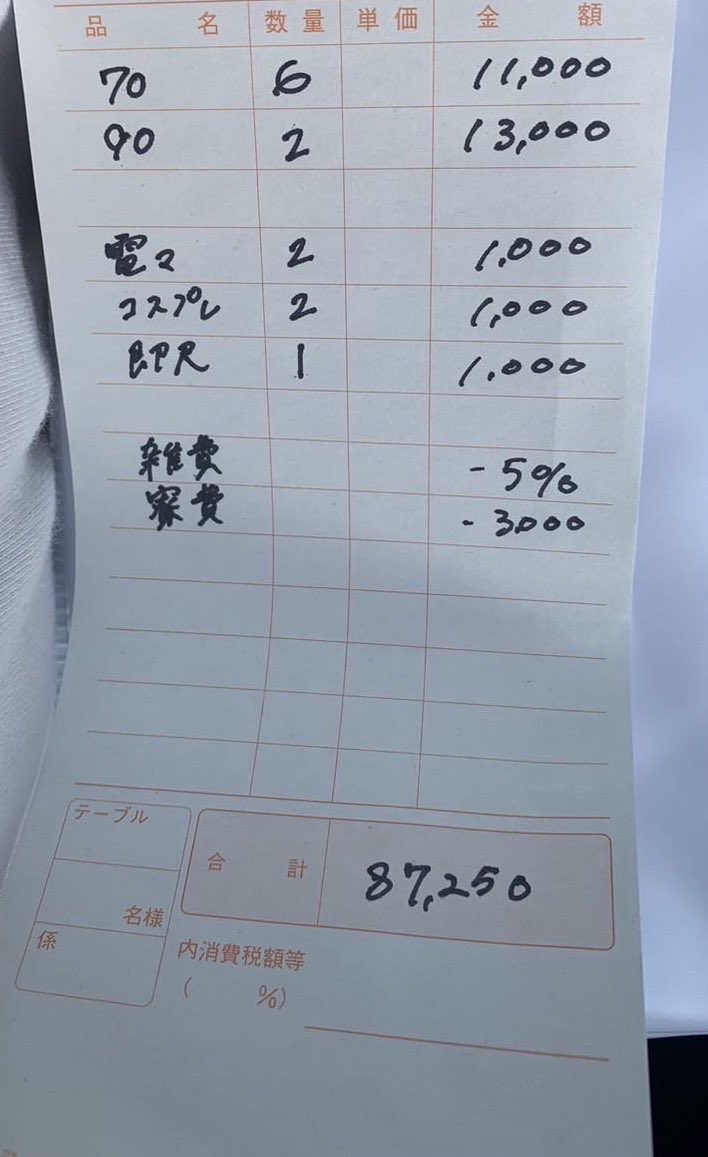 品名 数量 単価 金額
70 6 11,000
90 2 13,000
電マ 2 1,000
コスプレ 2 1,000
即尺 1 1,000
雑費 -5%
寮費 -3000
テーブル
名様
係
合計 87,250
内消費税額等
( %)